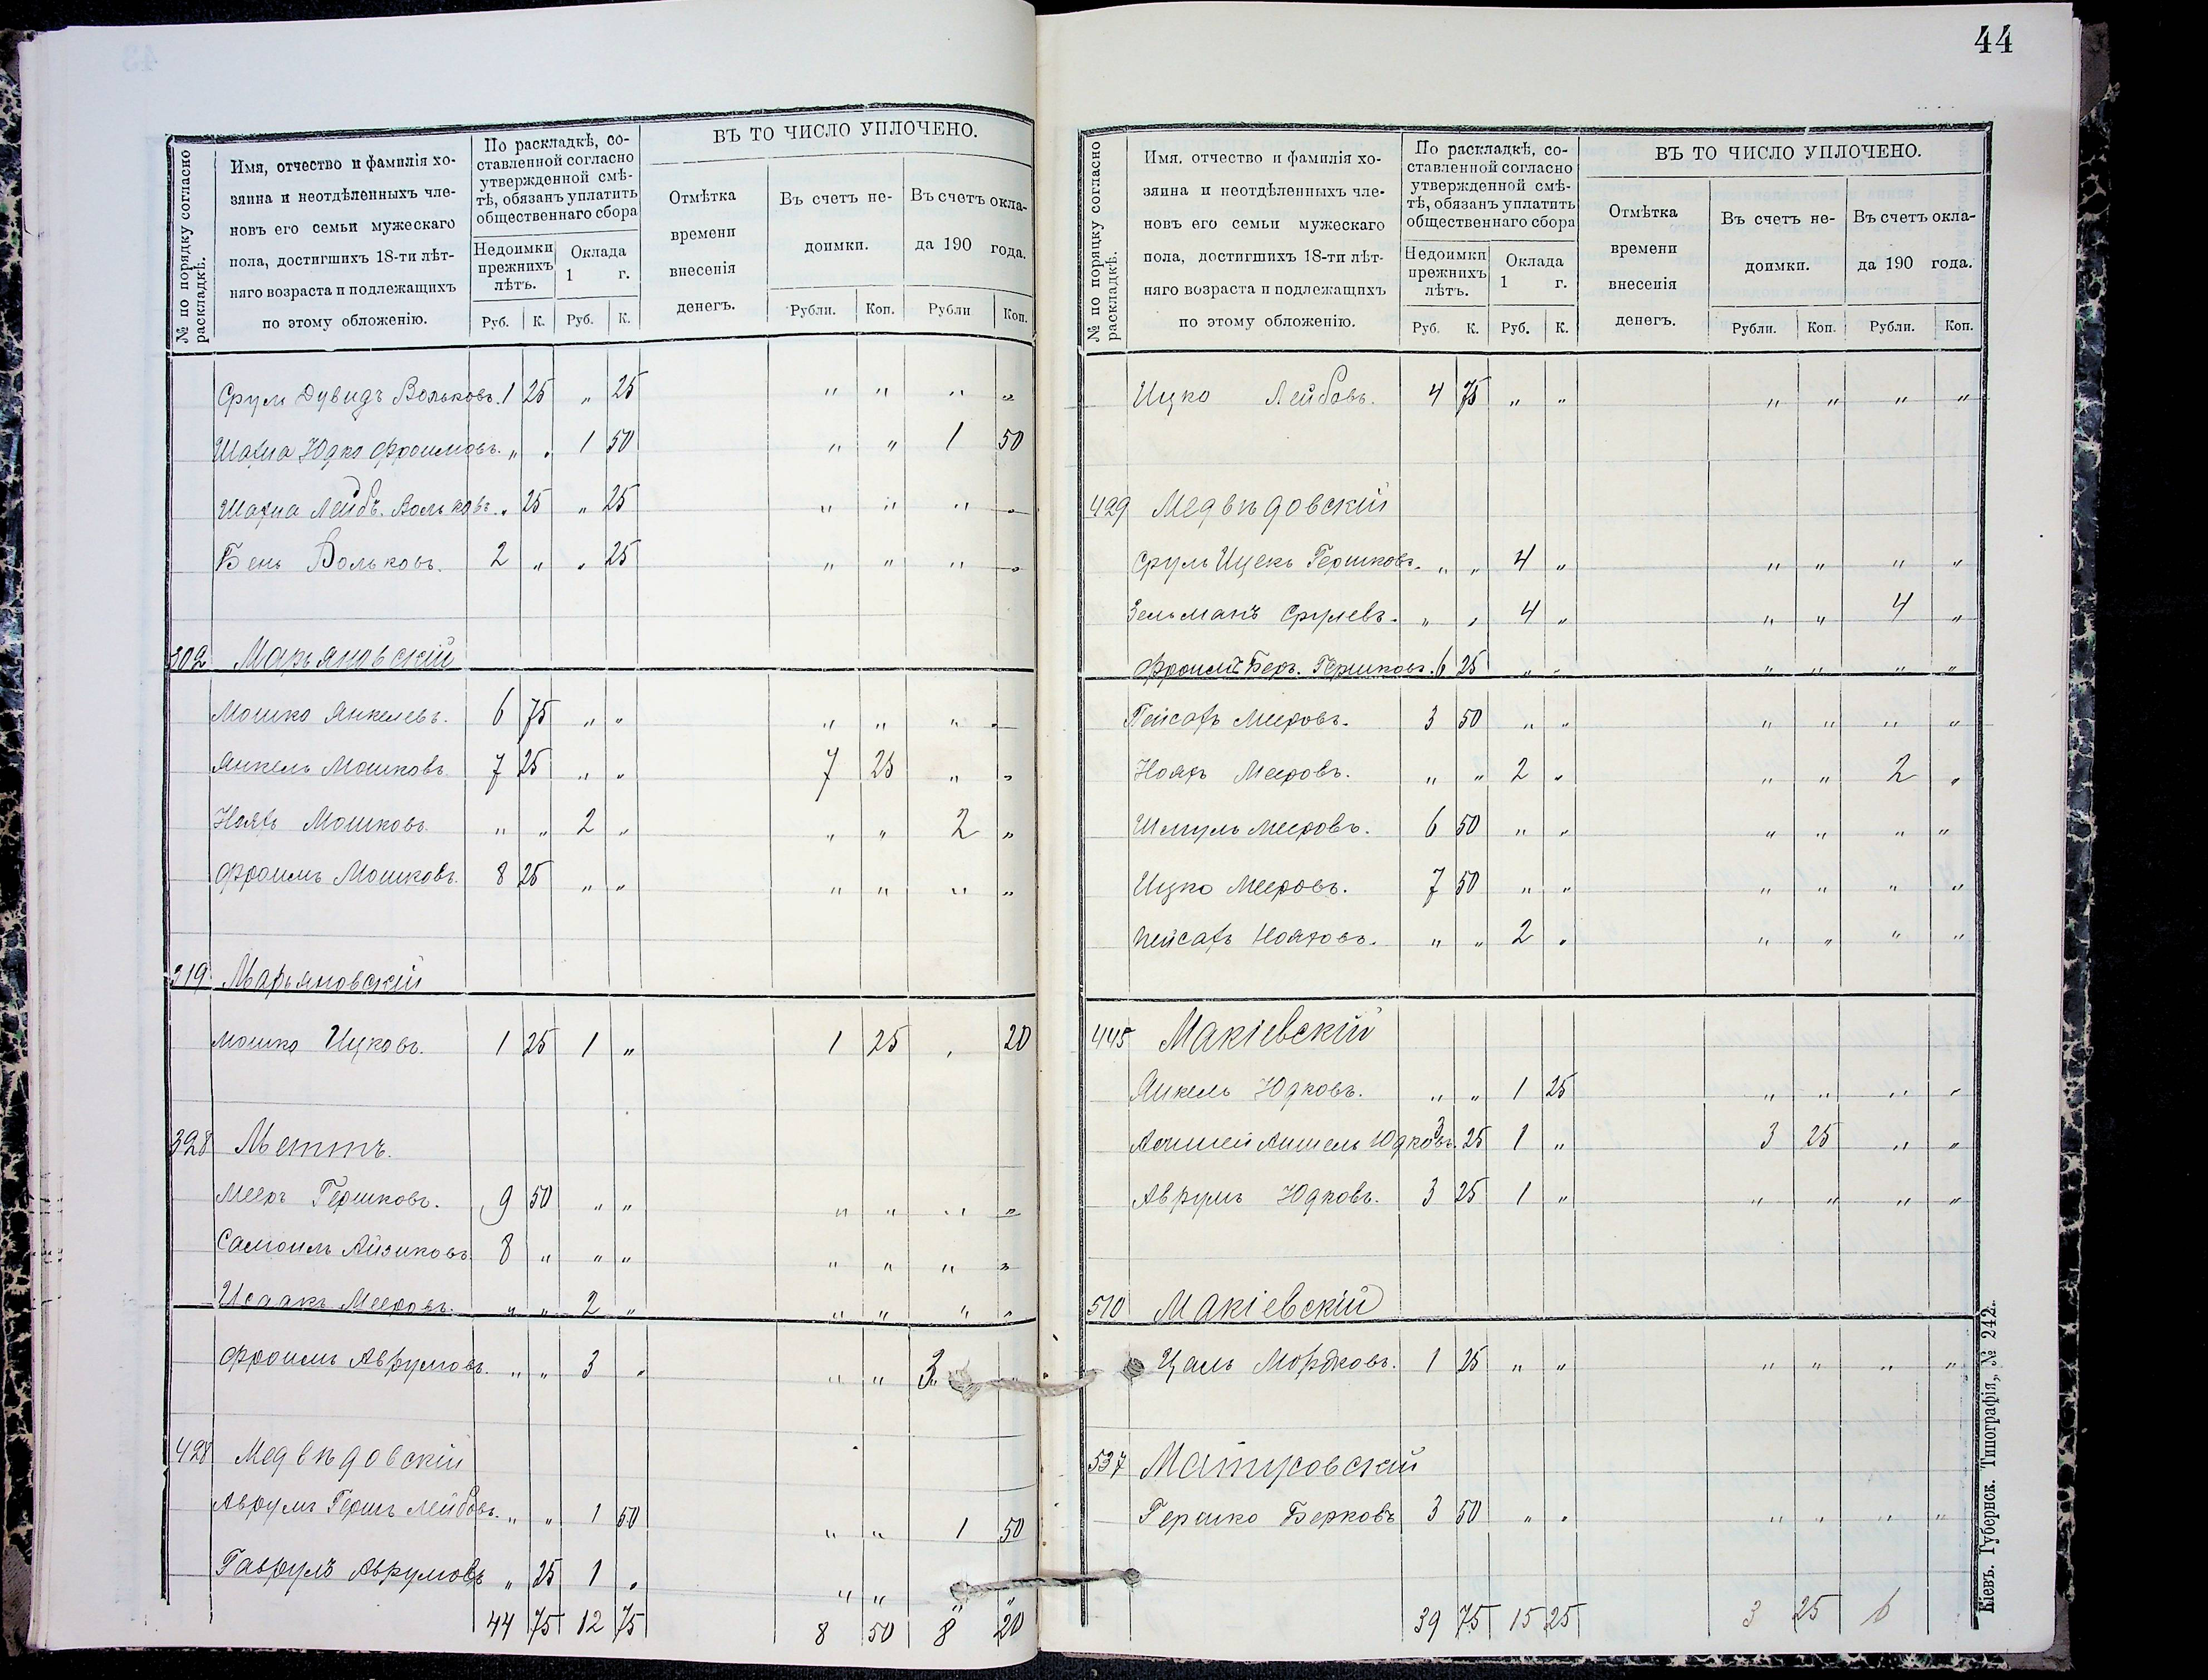 № по порядку согласно раскладкѣ.
Имя, отчество и фамилія хо-
зяина и неотдѣленныхъ чле-
новъ его семьи мужескаго
пола, достигшихъ 18-ти лѣт-
няго возраста и подлежащихъ
по этому обложенію.
По раскладкѣ, со-
ставленной согласно
утвержденной смѣ-
тѣ, обязанъ уплатить
общественнаго сбора
Недоимки прежнихъ лѣтъ.
Оклада 1 г.
Руб. К. Руб. К.
ВЪ ТО ЧИСЛО УПЛОЧЕНО.
Отмѣтка времени внесенія денегъ.
Въ счетъ не- доимки.
Въ счетъ окла- да 190 года.
Рубли. Коп. Рубли Коп.
Срул Дувидъ Вольковъ. 1 25 „ 25 „ „ „ „
Шахна Юдко Фроимовъ. „ „ 1 50 „ „ 1 50
Шахна Лейбъ Вольковъ. „ 25 „ 25 „ „ „ „
Бень Вольковъ. 2 „ „ 25 „ „ „ „
302 Марьяновскій
Мошко Янкелевъ. 6 75 „ „ „ „ „ „
Янкель Мошковъ 7 25 „ „ 7 25 „ „
Нояхъ Мошковъ. „ „ 2 „ „ „ 2 „
Фроимъ Мошковъ. 8 25 „ „ „ „ „ „
319 Марьяновскій
Мошко Ицковъ. 1 25 1 „ 1 25 „ 20
328 Меттъ.
Мееръ Гершковъ. 9 50 „ „ „ „ „ „
Самоилъ Айзиковъ. 8 „ „ „ „ „ „ „
Исаакъ Мееровъ. „ „ 2 „ „ „ „ „
Фроимъ Аврумовъ. „ „ 3 „ „ „ 3 „
428 Медвѣдовскій
Аврумъ Гершъ Лейбовъ. „ „ 1 50 „ „ 1 50
Гаврулъ Аврумовъ „ 25 1 „ „ „ „ „
44 75 12 75 8 50 8 20
44
№ по порядку согласно раскладкѣ.
Имя. отчество и фамилія хо-
зяина и неотдѣленныхъ чле-
новъ его семьи мужескаго
пола, достигшихъ 18-ти лѣт-
няго возраста и подлежащихъ
по этому обложенію.
По раскладкѣ, со-
ставленной согласно
утвержденной смѣ-
тѣ, обязанъ уплатить
общественнаго сбора
Недоимки прежнихъ лѣтъ.
Оклада 1 г.
Руб. К. Руб. К.
ВЪ ТО ЧИСЛО УПЛОЧЕНО.
Отмѣтка времени внесенія денегъ.
Въ счетъ не- доимки.
Въ счетъ окла- да 190 года.
Рубли. Коп. Рубли. Коп.
Ицко Лейбовъ. 4 75 „ „ „ „ „ „
429 Медвѣдовскій
Сруль Ицекъ Гершковъ. „ „ 4 „ „ „ „ „
Зельманъ Срулевъ. „ „ 4 „ „ „ 4 „
Фроимъ Беръ. Гершковъ. 6 25 „ „ „ „ „ „
Пейсахъ Мееровъ. 3 50 „ „ „ „ „ „
Нояхъ Мееровъ. „ „ 2 „ „ „ 2 „
Шмуль Мееровъ. 6 50 „ „ „ „ „ „
Ицко Мееровъ. 7 50 „ „ „ „ „ „
Пейсахъ Нояховъ. „ „ 2 „ „ „ „ „
445 Макіевскій
Янкель Юдковъ. „ „ 1 25 „ „ „ „
Аншель Юдковъ. 3 25 1 „ 3 25 „ „
Аврумъ Юдковъ. 3 25 1 „ „ „ „ „
510 Макіевскій
Цаль Мордковъ. 1 25 „ „ „ „ „ „
537 Матусовскій
Гершко Берковъ 3 50 „ „ „ „ „ „
39 75 15 25 3 25 6
Кіевъ. Губернск. Типографія„ № 242.